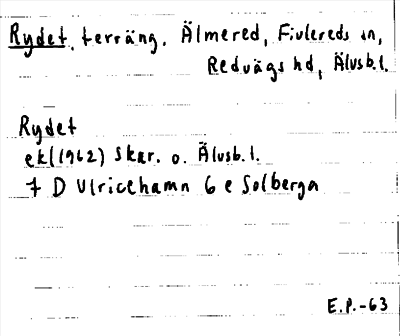 Rydet, terräng, Älmered, Fivlereds sn,
Redvägs hd, Älvsb.l.
Rydet
ek(1962) Skar. o. Älvsb.l.
7 D Ulricehamn 6 e Solberga
E.P.-63